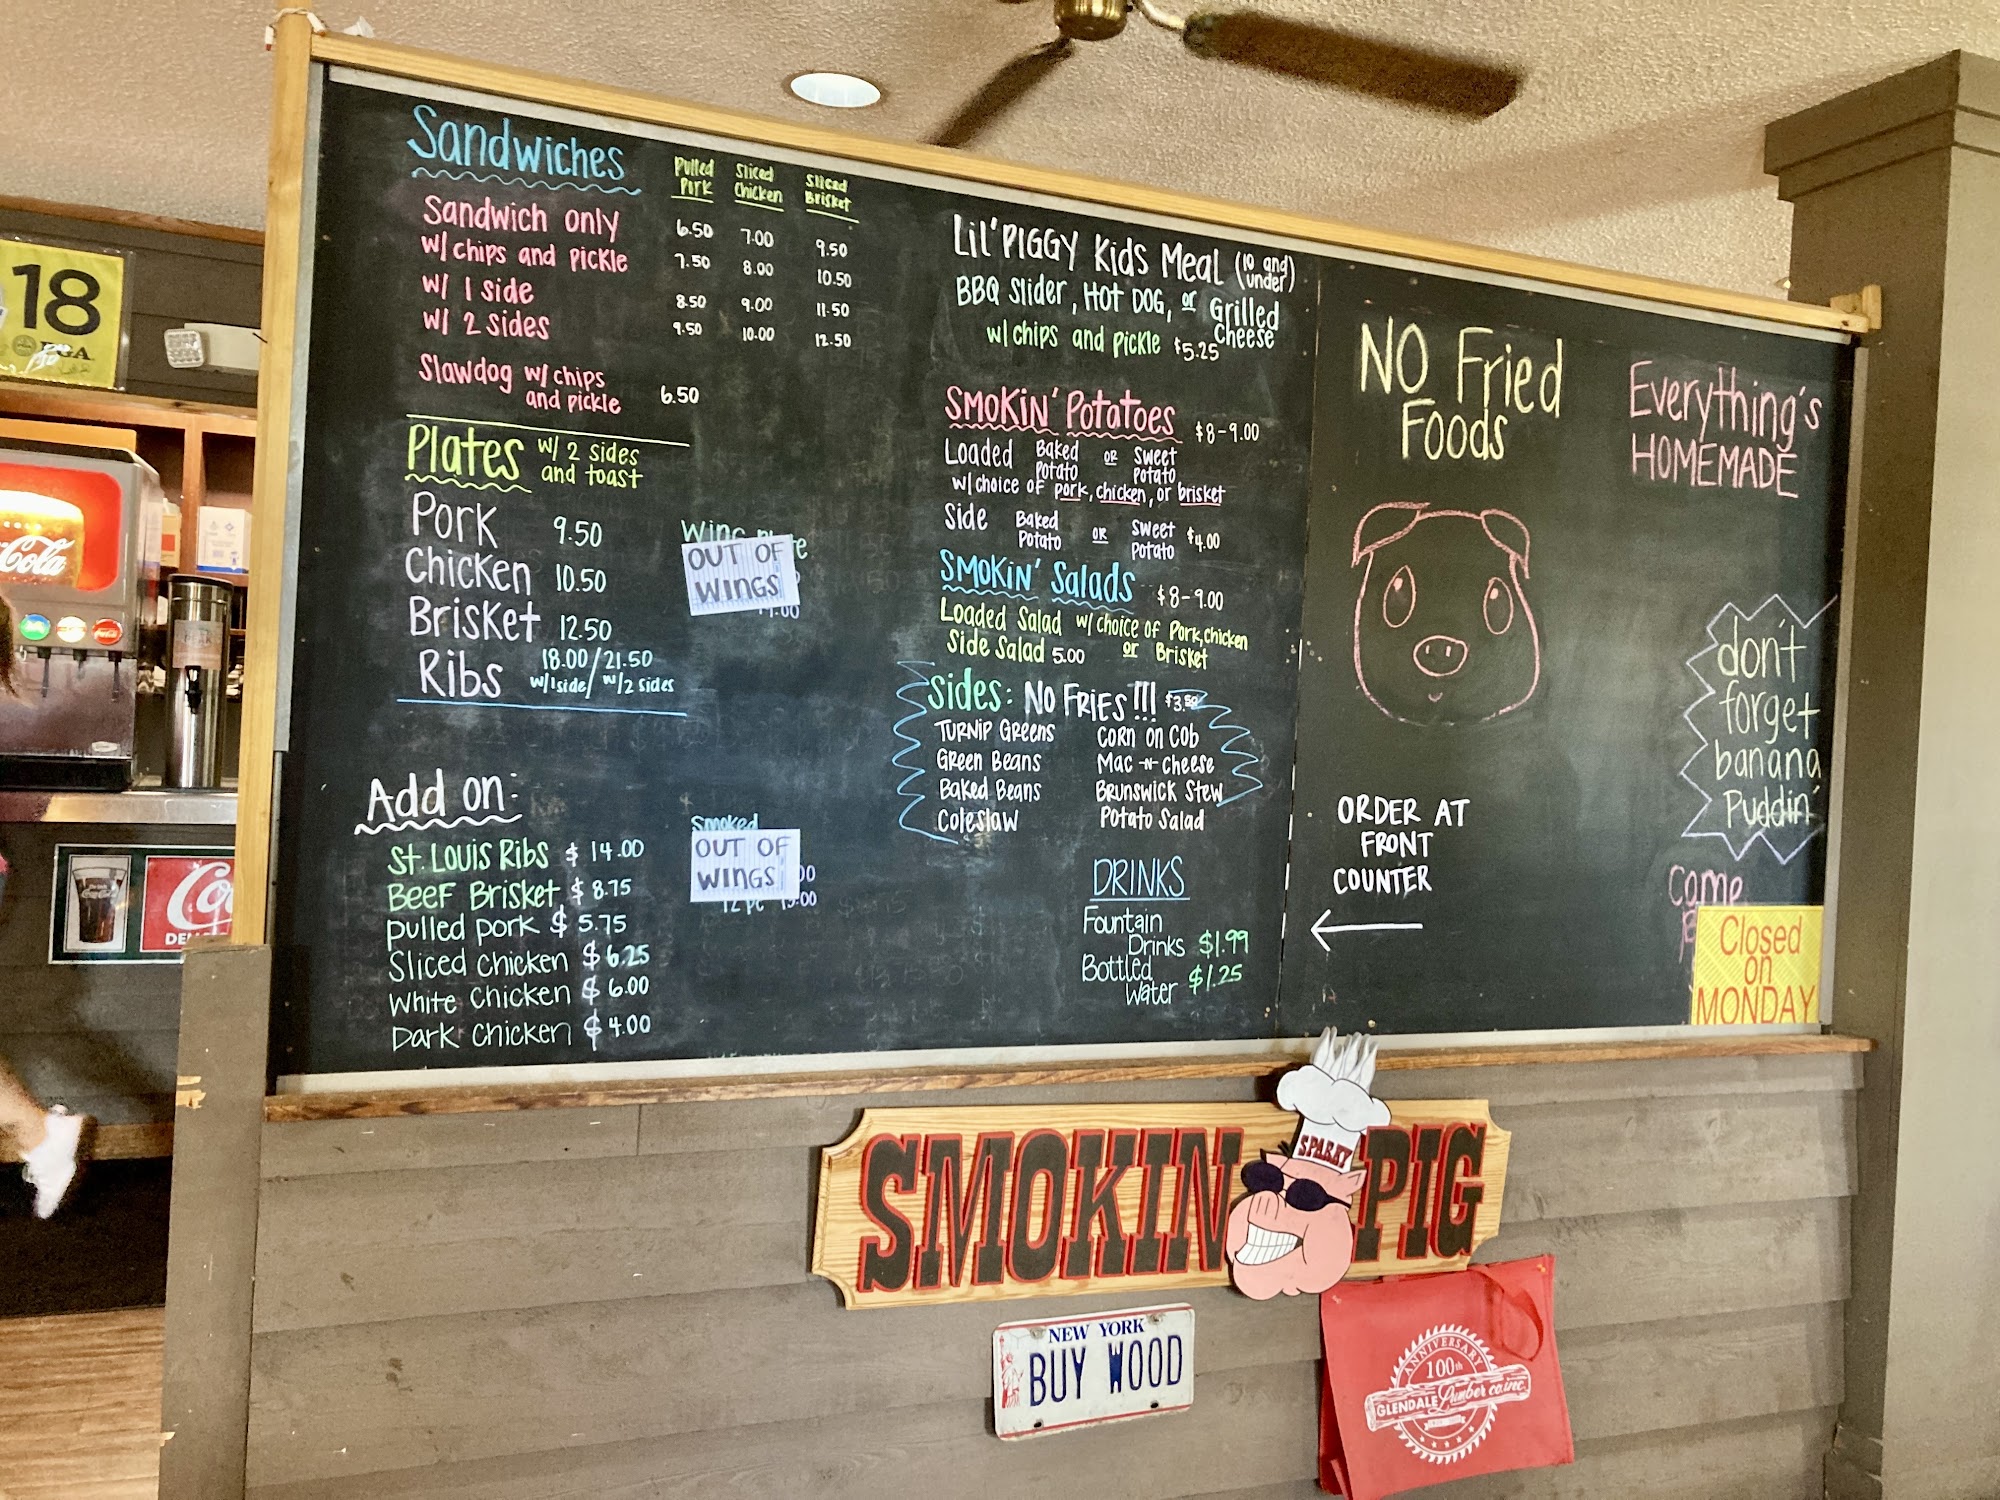 Sandwiches
Pulled Pork
Sliced Chicken
Sliced Brisket
Sandwich only 6.50 7.00 9.50
w/ chips and pickle 7.50 8.00 10.50
w/ 1 side 8.50 9.00 11.50
w/ 2 sides 9.50 10.00 12.50
Slawdog w/ chips
and pickle 6.50
Plates w/ 2 sides
and toast
Pork 9.50
Chicken 10.50
Brisket 12.50
Ribs 18.00/21.50
w/1side/ w/2 sides
OUT OF
WINGS
Add on:
St. Louis Ribs $ 14.00
Beef Brisket $ 8.75
Pulled Pork $ 5.75
Sliced Chicken $ 6.25
White Chicken $ 6.00
Dark Chicken $ 4.00
Smoked
OUT OF
WINGS
12 pc
Lil' PIGGY Kids Meal (10 and
under)
BBQ Slider, Hot Dog, or Grilled
Cheese
w/ chips and pickle $5.25
SMOKIN' Potatoes $8-9.00
Loaded Baked Potato or Sweet Potato
w/choice of pork, chicken, or brisket
Side Baked Potato or Sweet Potato $4.00
SMOKIN' Salads $8-9.00
Loaded Salad w/choice of Pork, chicken
or Brisket
Side Salad 5.00
Sides: NO FRIES!!! $3.50
Turnip Greens Corn on Cob
Green Beans Mac -n- cheese
Baked Beans Brunswick Stew
Coleslaw Potato Salad
DRINKS
Fountain
Drinks $1.99
Bottled
Water $1.25
NO Fried
Foods
Everything's
HOMEMADE
don't
forget
banana
Puddin'
ORDER AT
FRONT
COUNTER
Come
Closed
on
MONDAY
SMOKIN PIG
SPARKY
NEW YORK
BUY WOOD
ANNIVERSARY
100th
GLENDALE Lumber co. inc.
18
PGA
Cola
Co